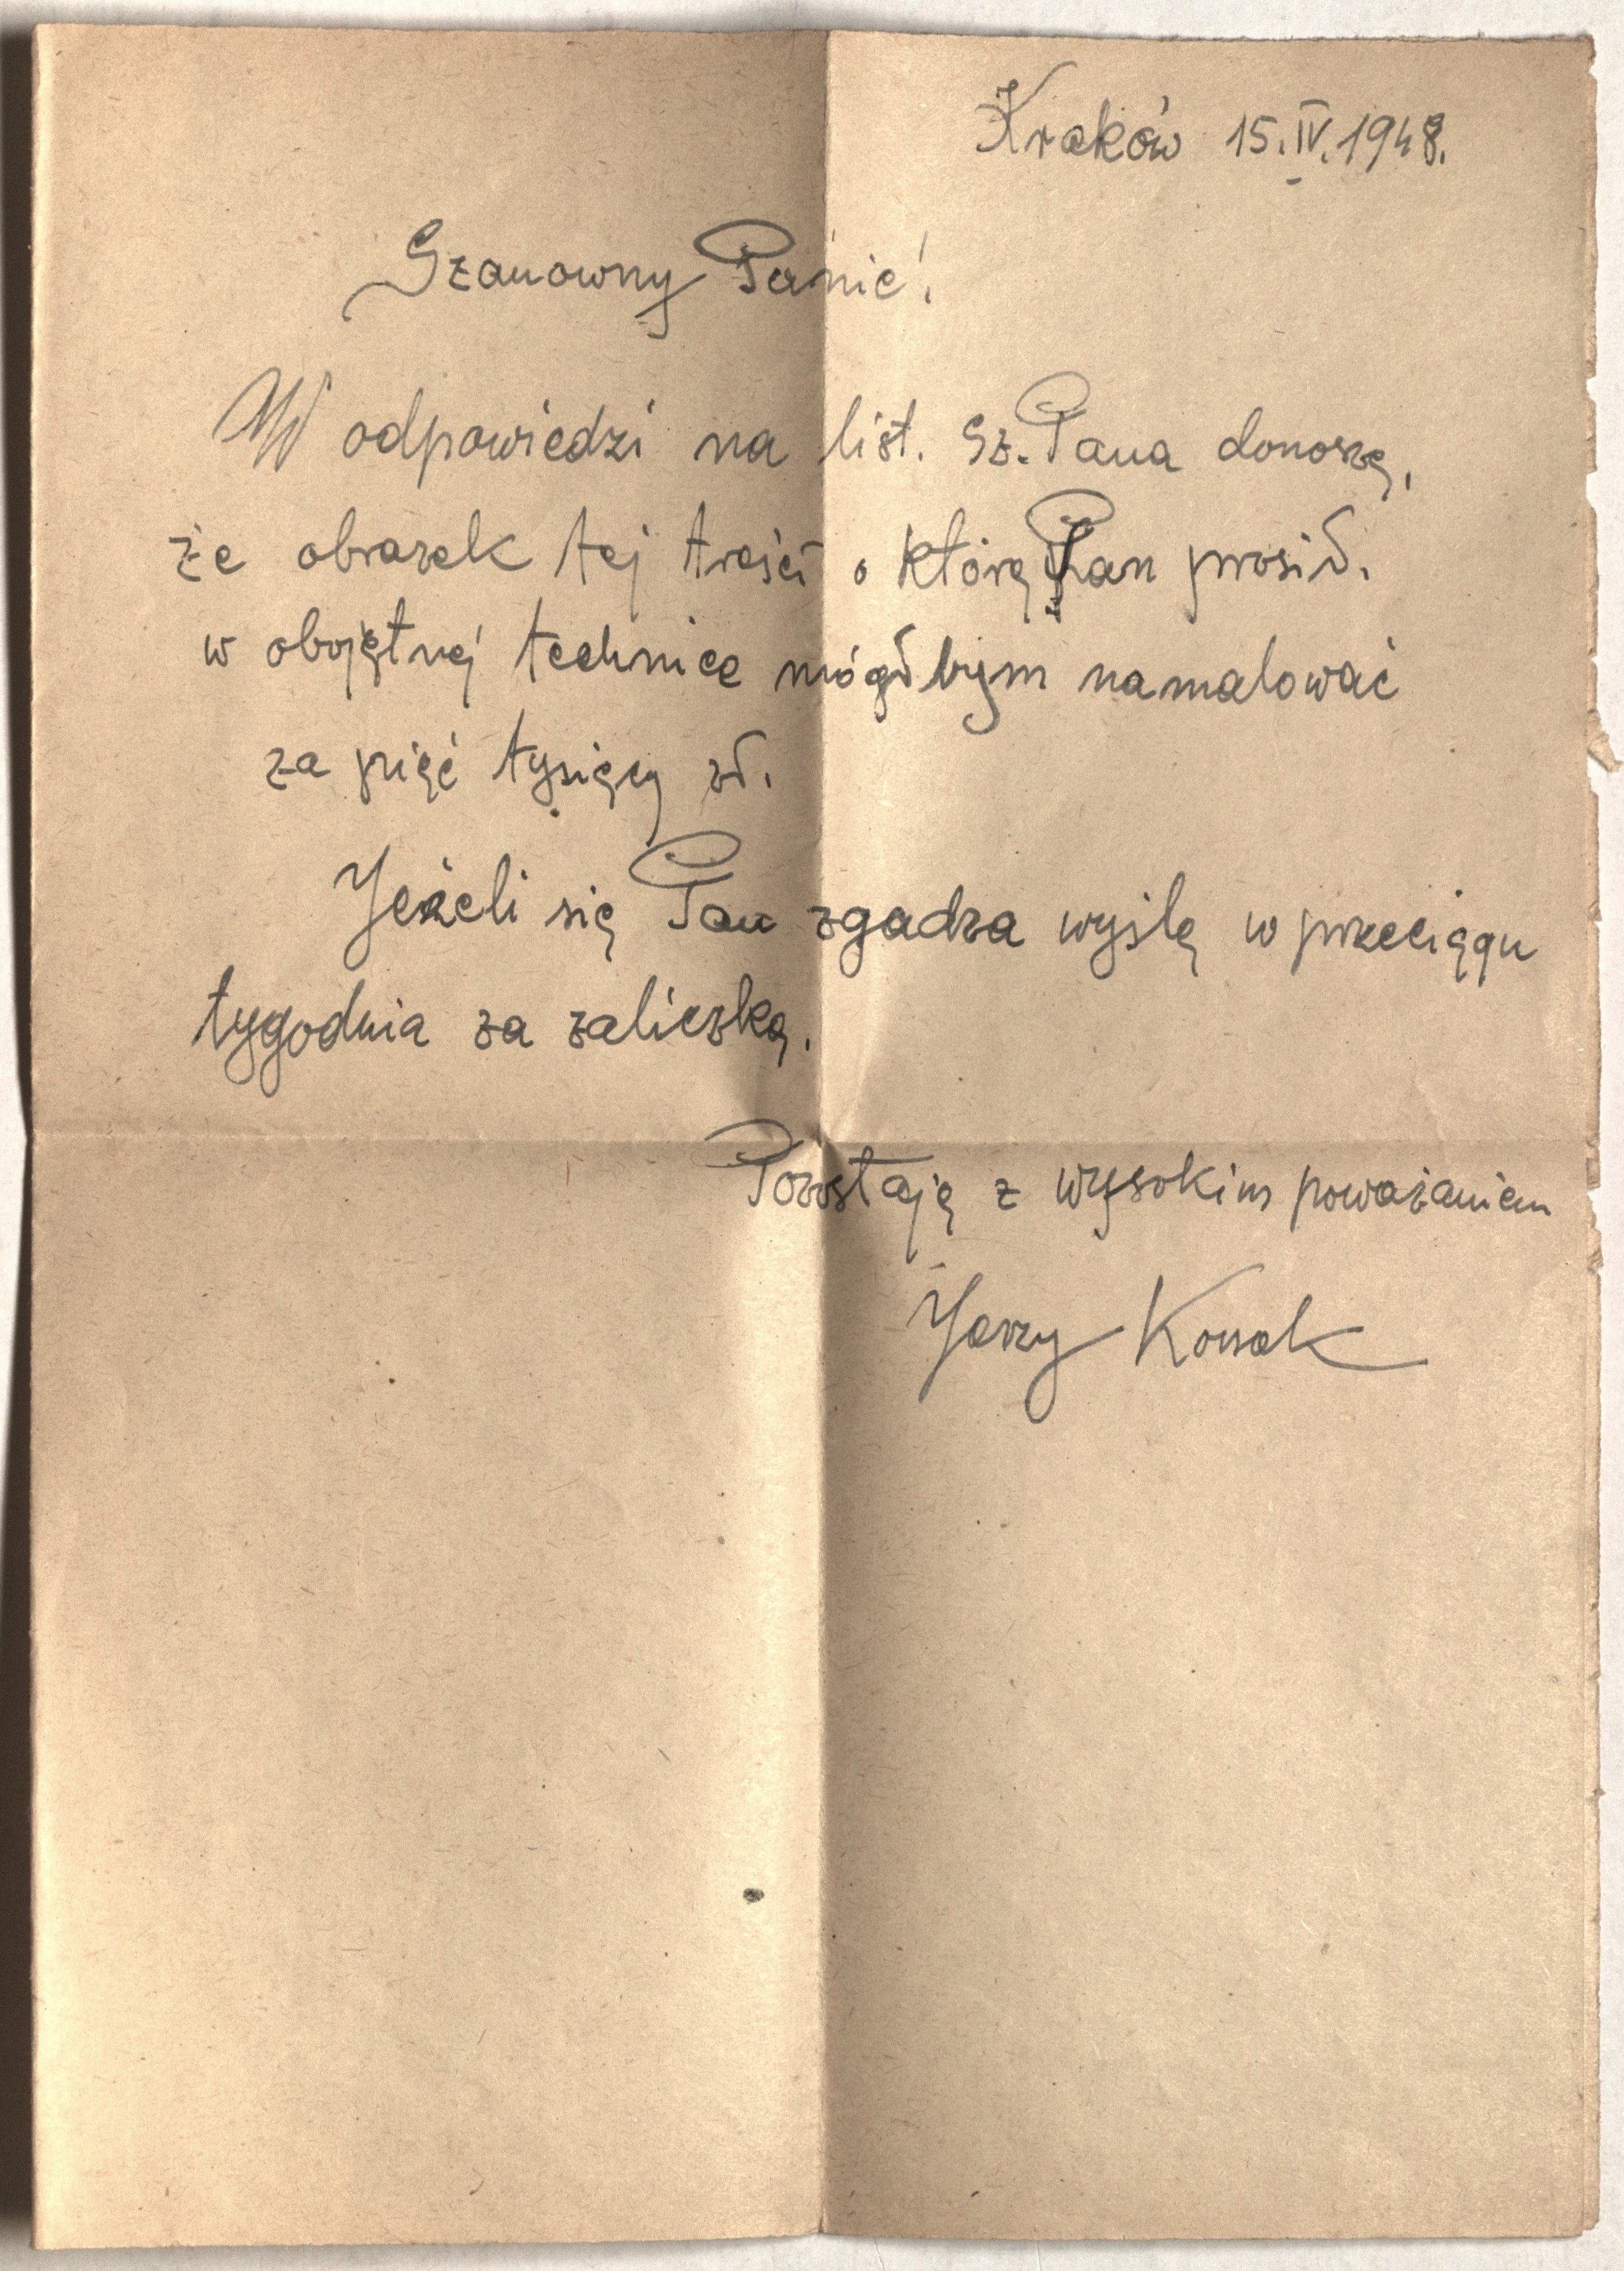 Kraków 15.IV.1948.
Szanowny Panie!
W odpowiedzi na list. Sz. Pana donoszę,
że obrazek tej treści o którą Pan prosił.
w obojętnej technice mógłbym namalować
za pięć tysięcy zł.
Jeżeli się Pan zgadza wyślę w przeciągu
tygodnia za zaliczką.
Pozostaję z wysokim poważaniem
Jerzy Kossak